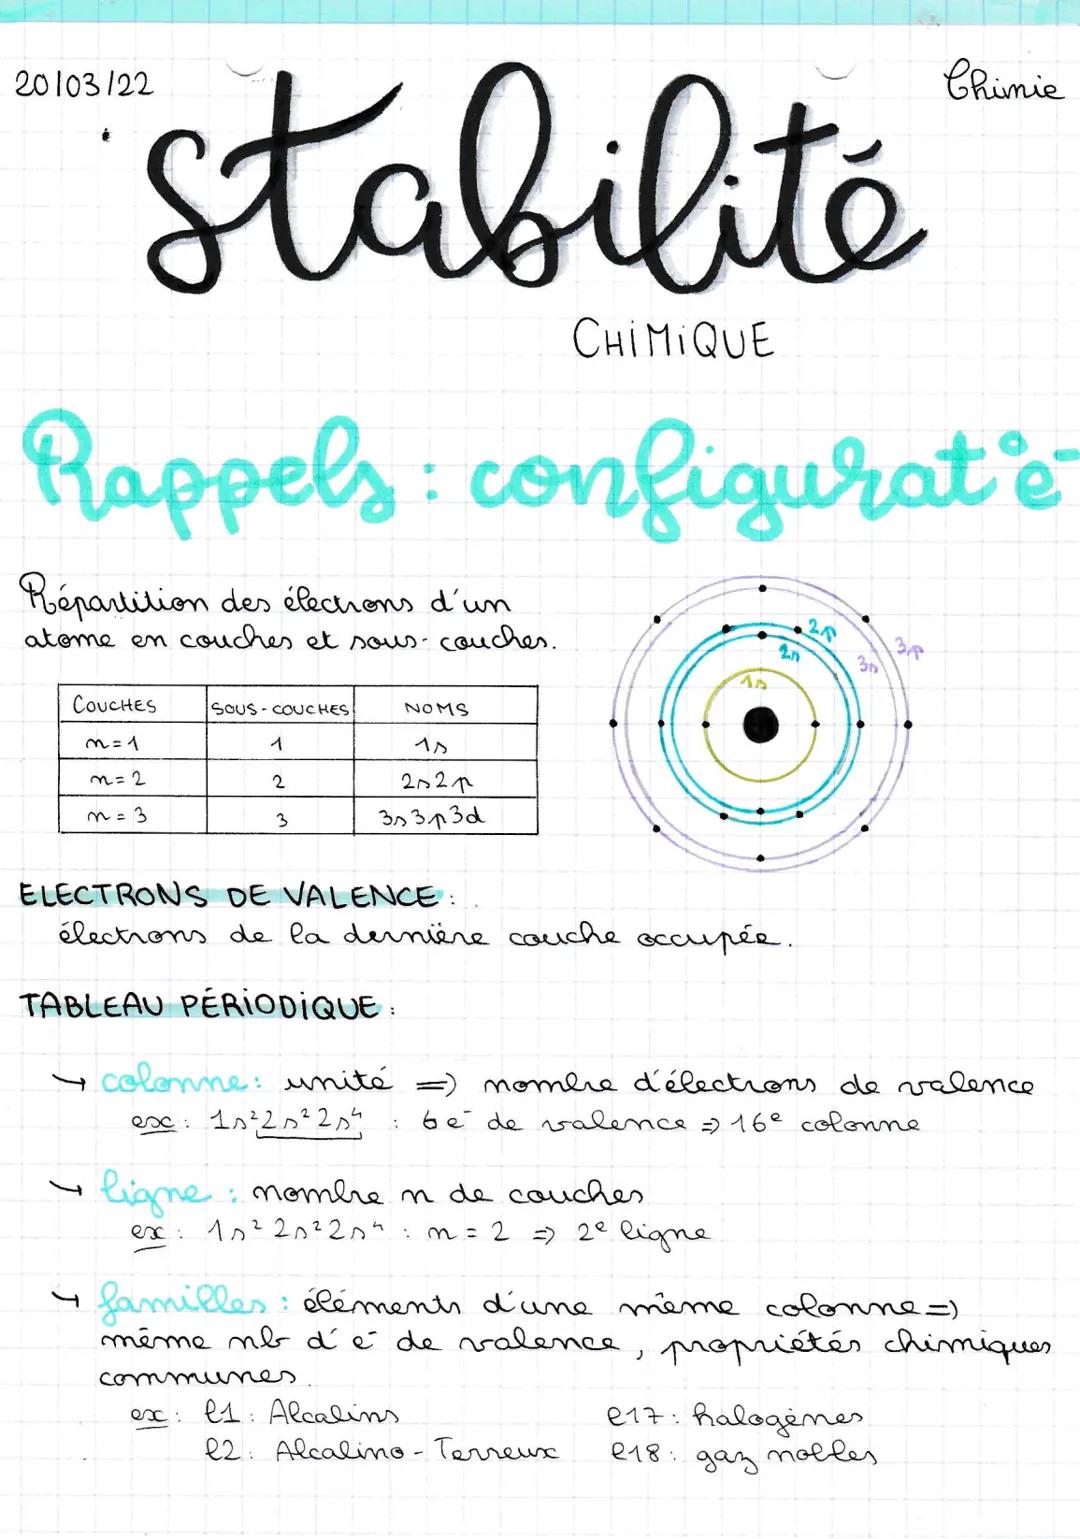 20/03/22
Chimie
stabilité
CHIMIQUE
Rappels : configurat° e⁻
Répartition des électrons d'un
atome en couches et sous-couches.
COUCHES SOUS-COUCHES NOMS
n=1 1 1s
n=2 2 2s2p
n=3 3 3s3p3d
1s
2s
2p
3s
3p
ELECTRONS DE VALENCE :
électrons de la dernière couche occupée.
TABLEAU PÉRIODIQUE :
→ colonne : unité => nombre d'électrons de valence
ex : 1s² 2s² 2s⁴ : 6 e⁻ de valence => 16e colonne
→ ligne : nombre n de couches
ex : 1s² 2s² 2s⁴ : n = 2 => 2e ligne
→ familles : éléments d'une même colonne =>
même nb d'e⁻ de valence, propriétés chimiques
communes.
ex : l1 : Alcalins l17 : halogènes
l2 : Alcalino-Terreux l18 : gaz nobles